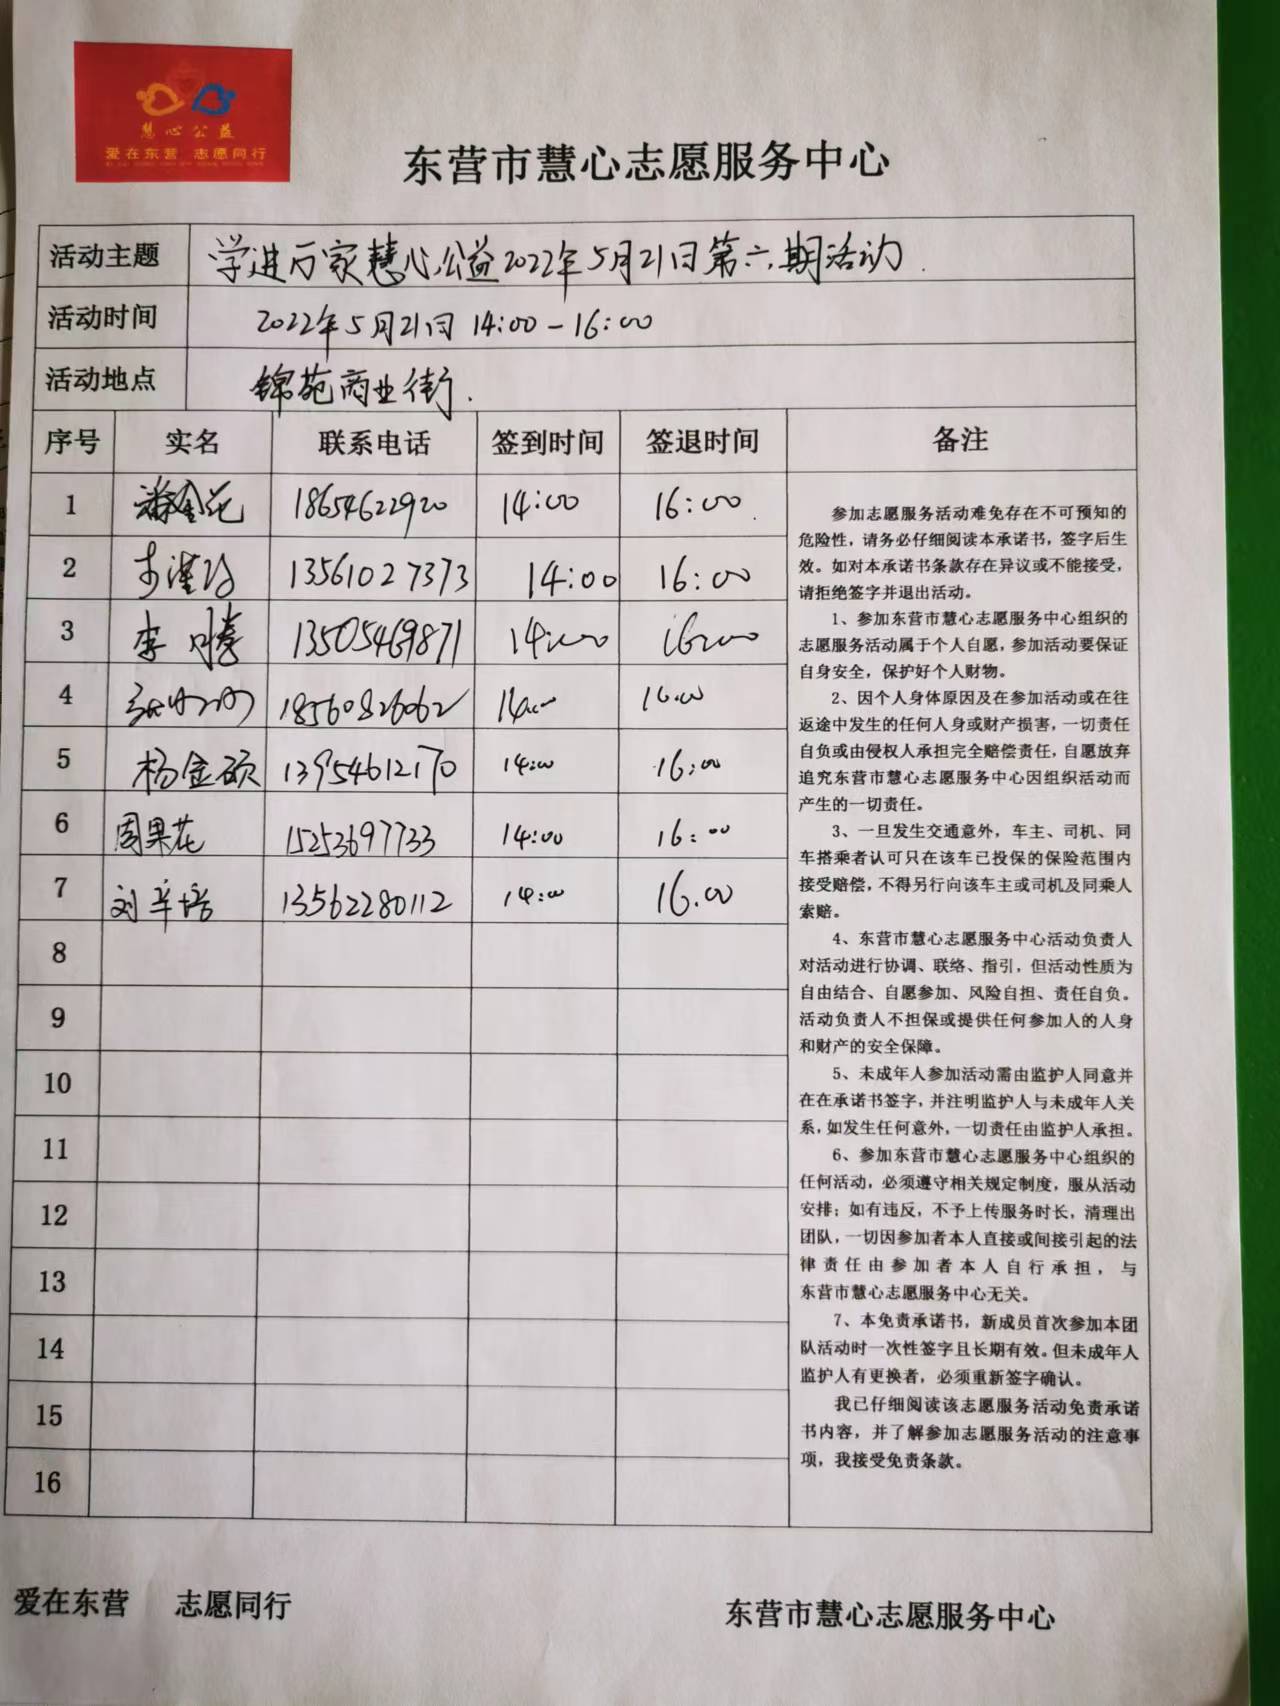 慧心公益
爱在东营 志愿同行
东营市慧心志愿服务中心
活动主题 学进万家慧心公益2022年5月21日第六期活动.
活动时间 2022年5月21日 14:00-16:00
活动地点 锦苑商业街.
序号 实名 联系电话 签到时间 签退时间 备注
1 潘金花 18654622920 14:00 16:00
2 13561027373 14:00 16:00
3 李 13505469871 14:00 16:00
4 18560826062 14:00 16.00
5 杨金硕 13954612170 14:00 16:00
6 周果花 15253697733 14:00 16:00
7 刘辛培 13562280112 14:00 16.00
8
9
10
11
12
13
14
15
16
参加志愿服务活动难免存在不可预知的
危险性，请务必仔细阅读本承诺书，签字后生
效。如对本承诺书条款存在异议或不能接受，
请拒绝签字并退出活动。
1、参加东营市慧心志愿服务中心组织的
志愿服务活动属于个人自愿，参加活动要保证
自身安全，保护好个人财物。
2、因个人身体原因及在参加活动或在往
返途中发生的任何人身或财产损害，一切责任
自负或由侵权人承担完全赔偿责任，自愿放弃
追究东营市慧心志愿服务中心因组织活动而
产生的一切责任。
3、一旦发生交通意外，车主、司机、同
车搭乘者认可只在该车已投保的保险范围内
接受赔偿，不得另行向该车主或司机及同乘人
索赔。
4、东营市慧心志愿服务中心活动负责人
对活动进行协调、联络、指引，但活动性质为
自由结合、自愿参加、风险自担、责任自负。
活动负责人不担保或提供任何参加人的人身
和财产的安全保障。
5、未成年人参加活动需由监护人同意并
在在承诺书签字，并注明监护人与未成年人关
系，如发生任何意外，一切责任由监护人承担。
6、参加东营市慧心志愿服务中心组织的
任何活动，必须遵守相关规定制度，服从活动
安排；如有违反，不予上传服务时长，清理出
团队，一切因参加者本人直接或间接引起的法
律责任由参加者本人自行承担，与
东营市慧心志愿服务中心无关。
7、本免责承诺书，新成员首次参加本团
队活动时一次性签字且长期有效。但未成年人
监护人有更换者，必须重新签字确认。
我已仔细阅读该志愿服务活动免责承诺
书内容，并了解参加志愿服务活动的注意事
项，我接受免责条款。
爱在东营 志愿同行 东营市慧心志愿服务中心